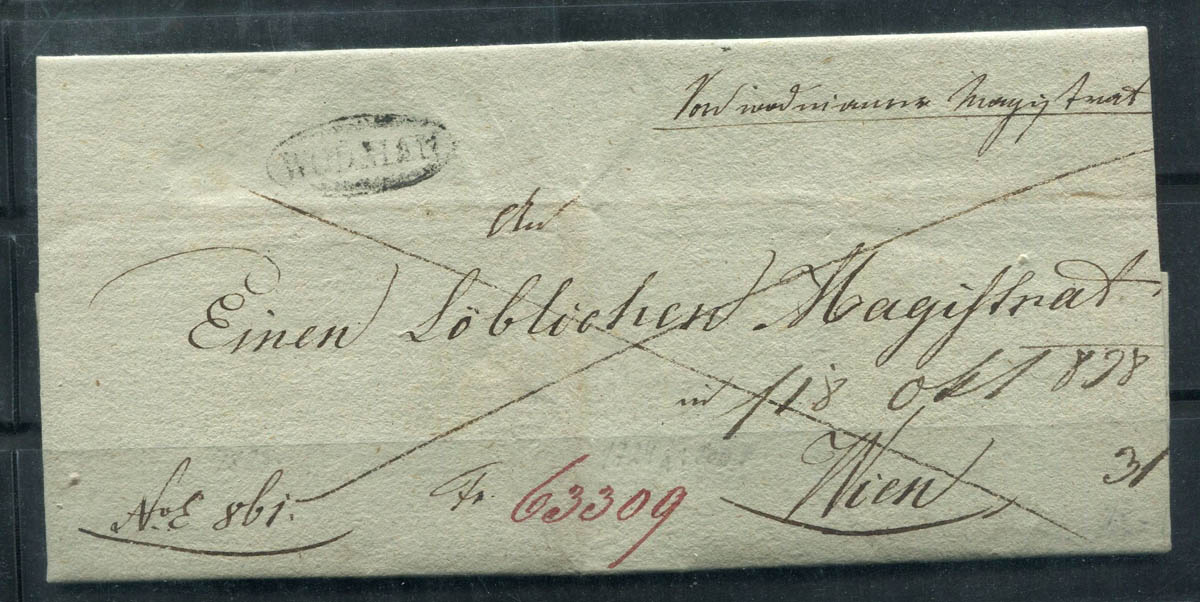 Vom wodnianner Magistrat
WODNIAN
An
Einen Löblichen Magistrat
in 18 Okt 828
Wien
31
No E 861.
Fr. 63309